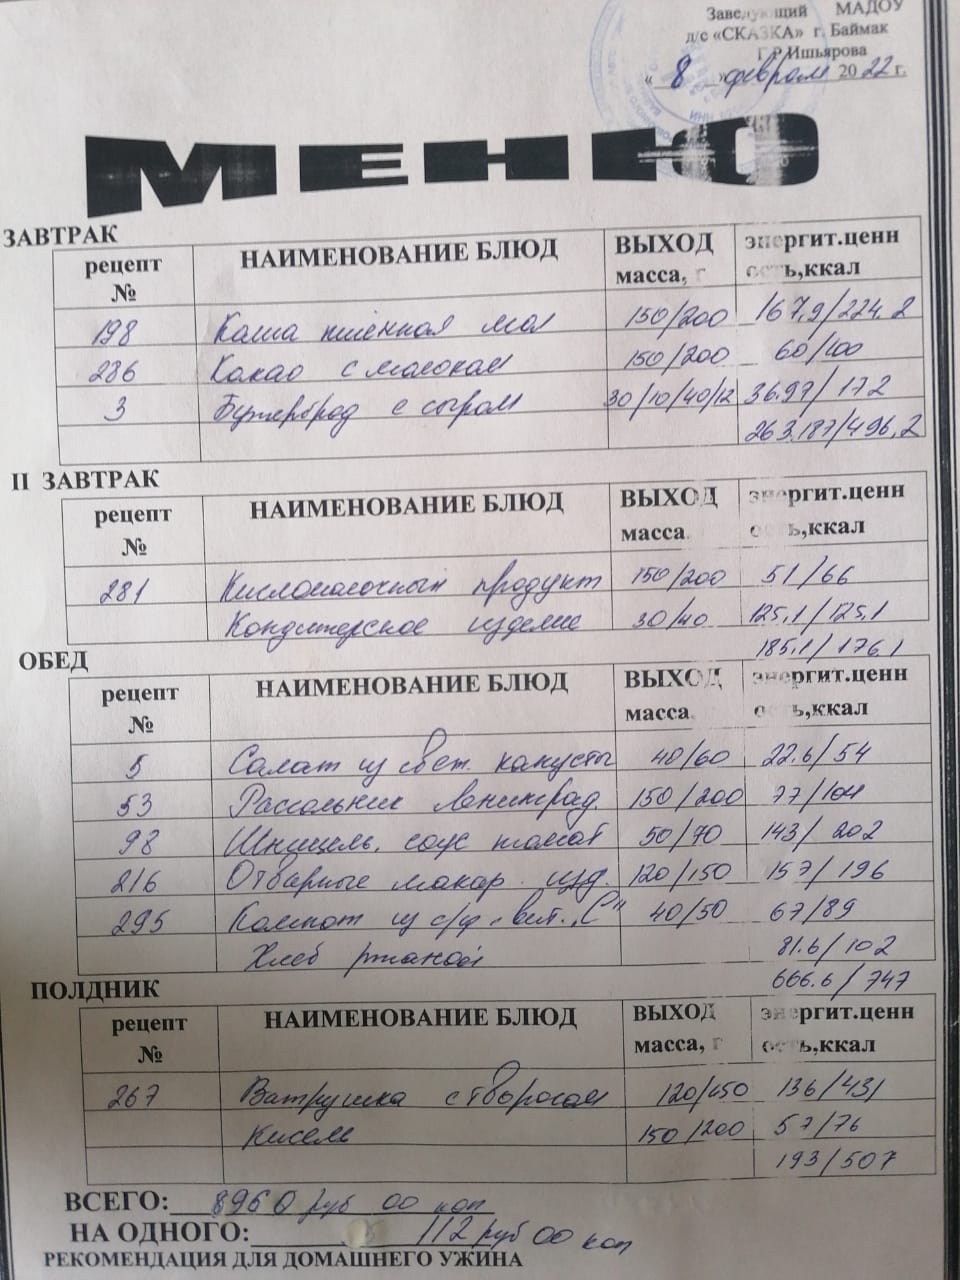 Заведующий МАДОУ
д/с «СКАЗКА» г. Баймак
Г.Р.Ишьярова
« 8 » февраля 2022 г.
МЕНЮ
ЗАВТРАК
рецепт № НАИМЕНОВАНИЕ БЛЮД ВЫХОД масса, г энергит.ценность,ккал
198 Каша пшенная мол 150/200 167,9/224,2
286 Какао с молоком 150/200 60/100
3 Бутерброд с сыром 30/10/40/12 36.97/172
263.187/496,2
II ЗАВТРАК
рецепт № НАИМЕНОВАНИЕ БЛЮД ВЫХОД масса энергит.ценность,ккал
281 Кисломолочный продукт 150/200 51/66
Кондитерское изделие 30/40 125,1/125,1
185.1/176,1
ОБЕД
рецепт № НАИМЕНОВАНИЕ БЛЮД ВЫХОД масса энергит.ценность,ккал
5 Салат из свеж. капусты 40/60 22.6/54
53 Рассольник Ленинград 150/200 77/104
98 Шницель, соус томат 50/70 143/202
216 Отварные макар. изд. 120/150 157/196
295 Компот из с/ф, вит. "С" 40/50 67/89
Хлеб ржаной 81.6/102
666.6/747
ПОЛДНИК
рецепт № НАИМЕНОВАНИЕ БЛЮД ВЫХОД масса, г энергит.ценность,ккал
267 Ватрушка с творогом 120/450 136/431
Кисель 150/200 57/76
193/507
ВСЕГО: 8960 руб 00 коп
НА ОДНОГО: 112 руб 00 коп
РЕКОМЕНДАЦИЯ ДЛЯ ДОМАШНЕГО УЖИНА